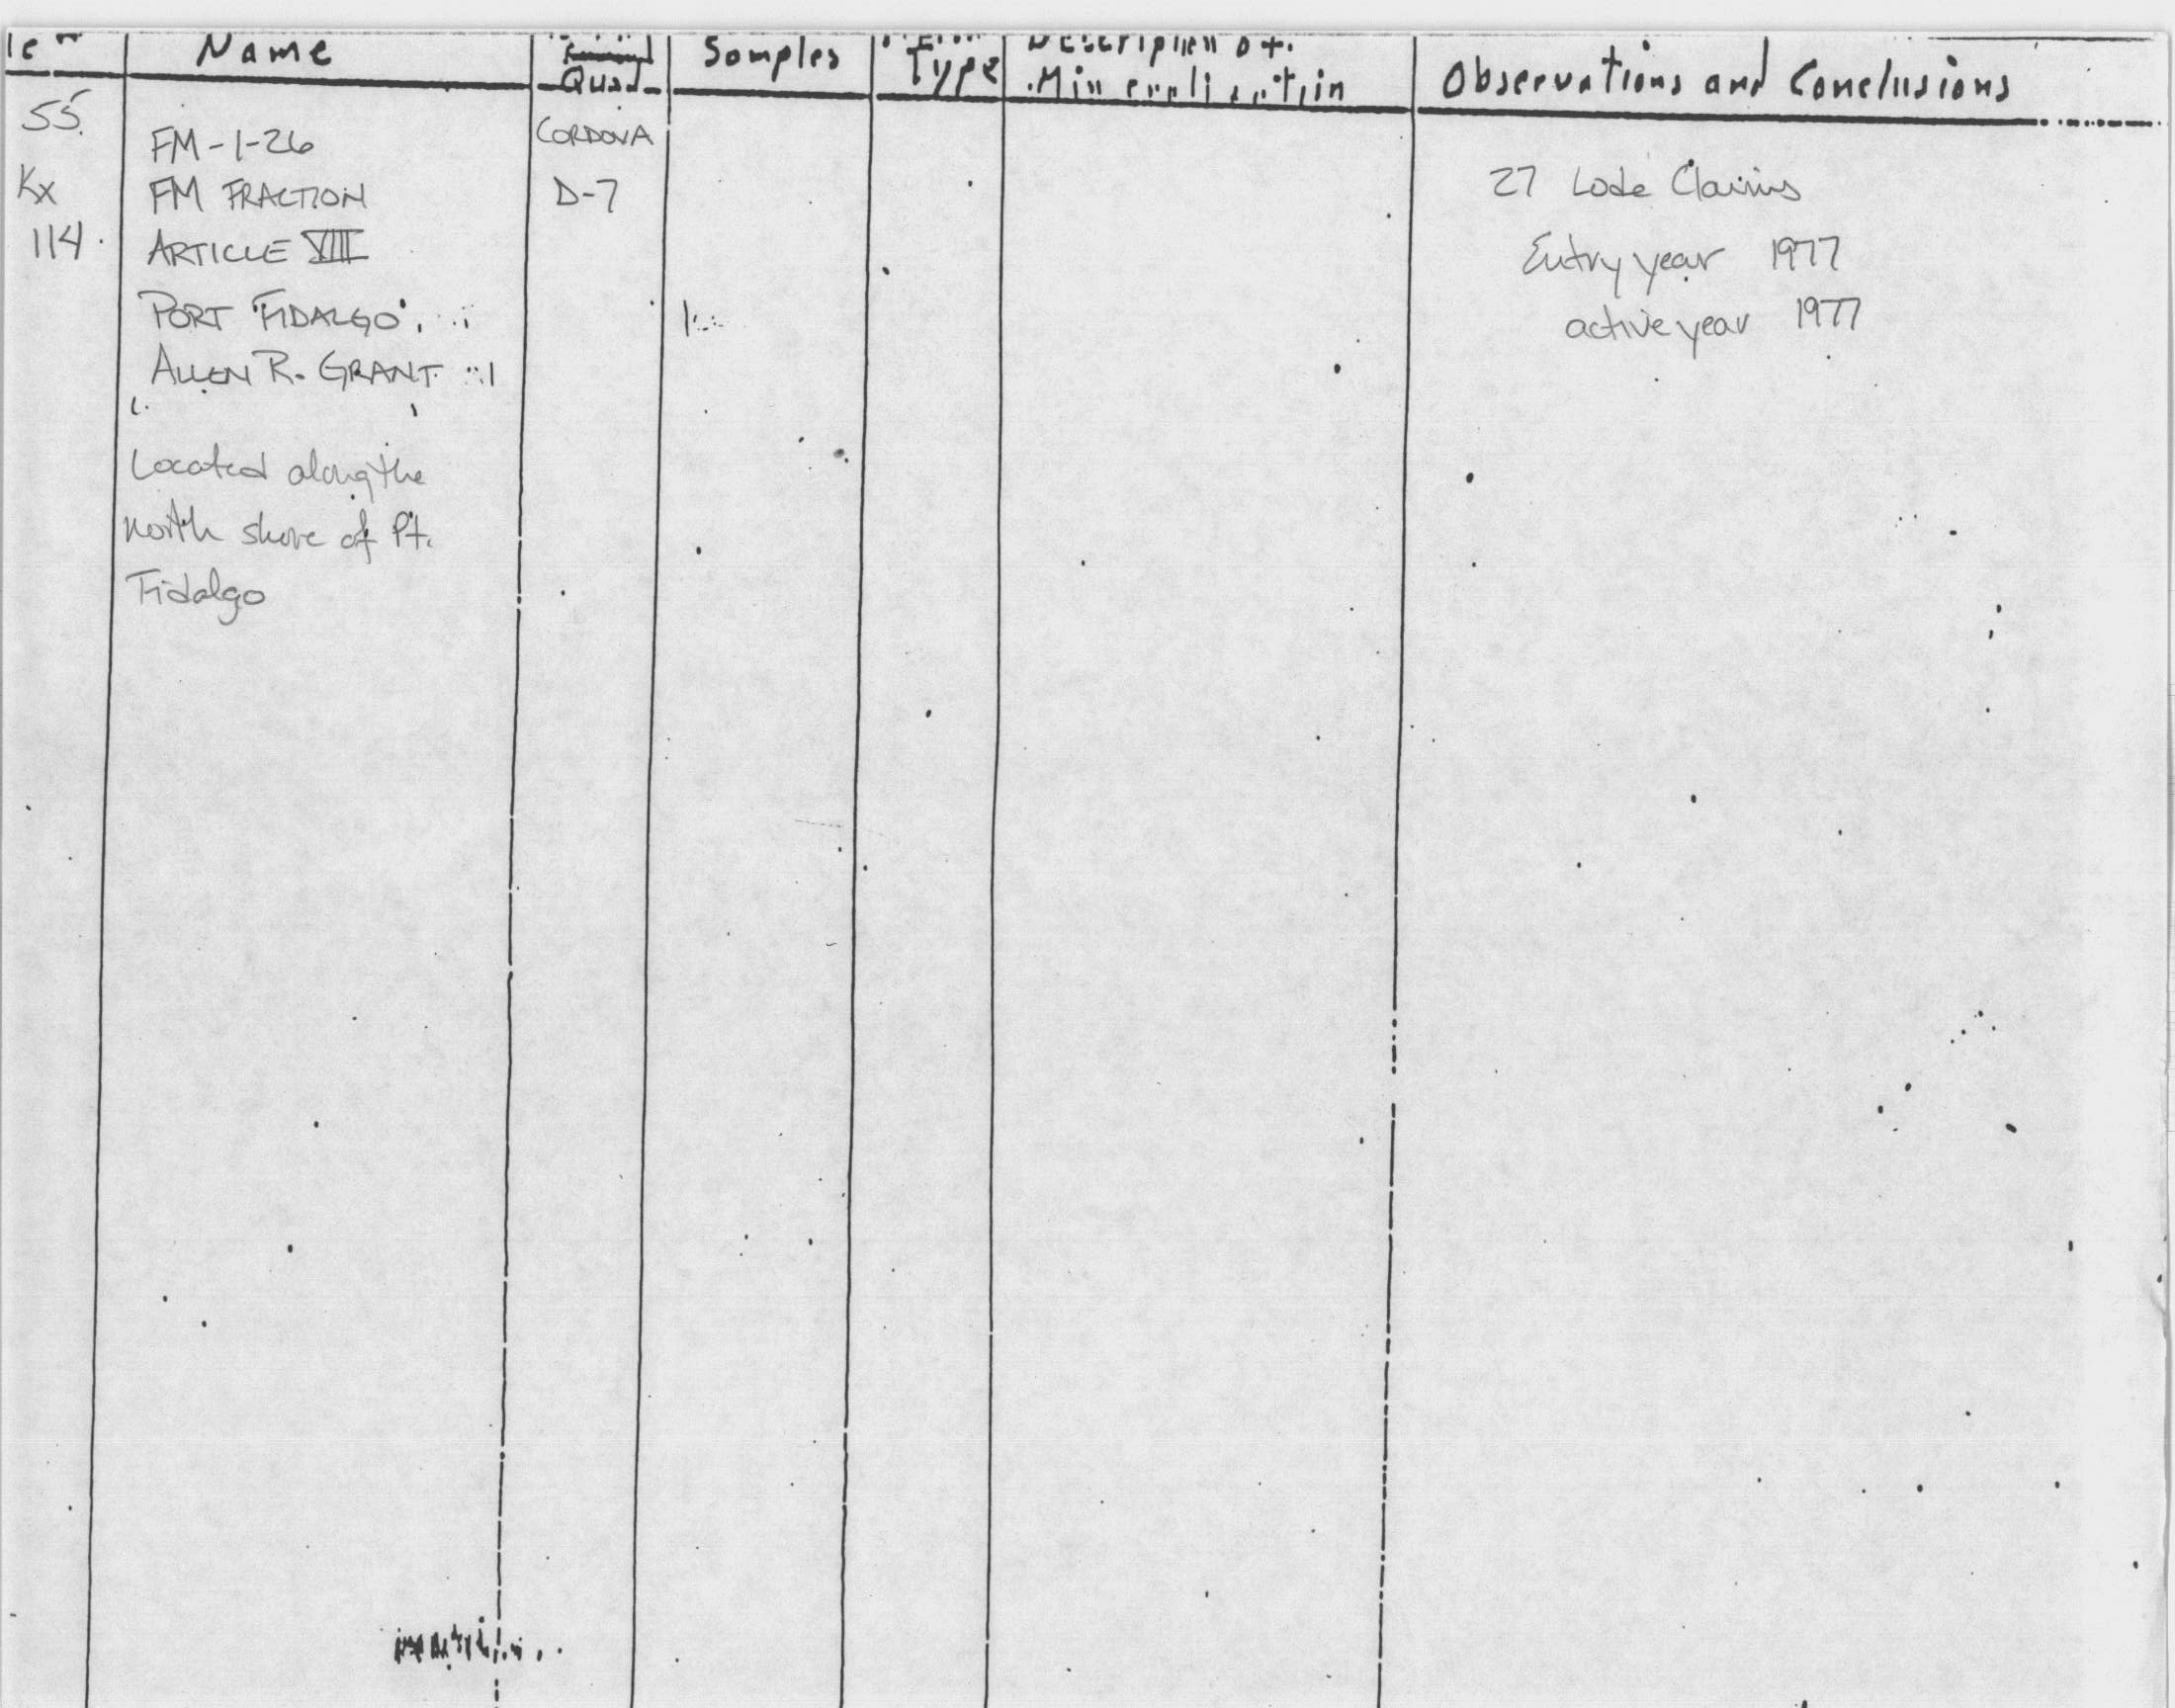 Name
Quad
Samples
Type
Description of
Observations and Conclusions
55
Kx
114
FM-1-26
FM FRACTION
ARTICLE VIII
PORT FIDALGO
ALLEN R. GRANT
Located along the
north shore of Pt.
Fidalgo
CORDOVA
D-7
27 Lode Claims
Entry year 1977
active year 1977